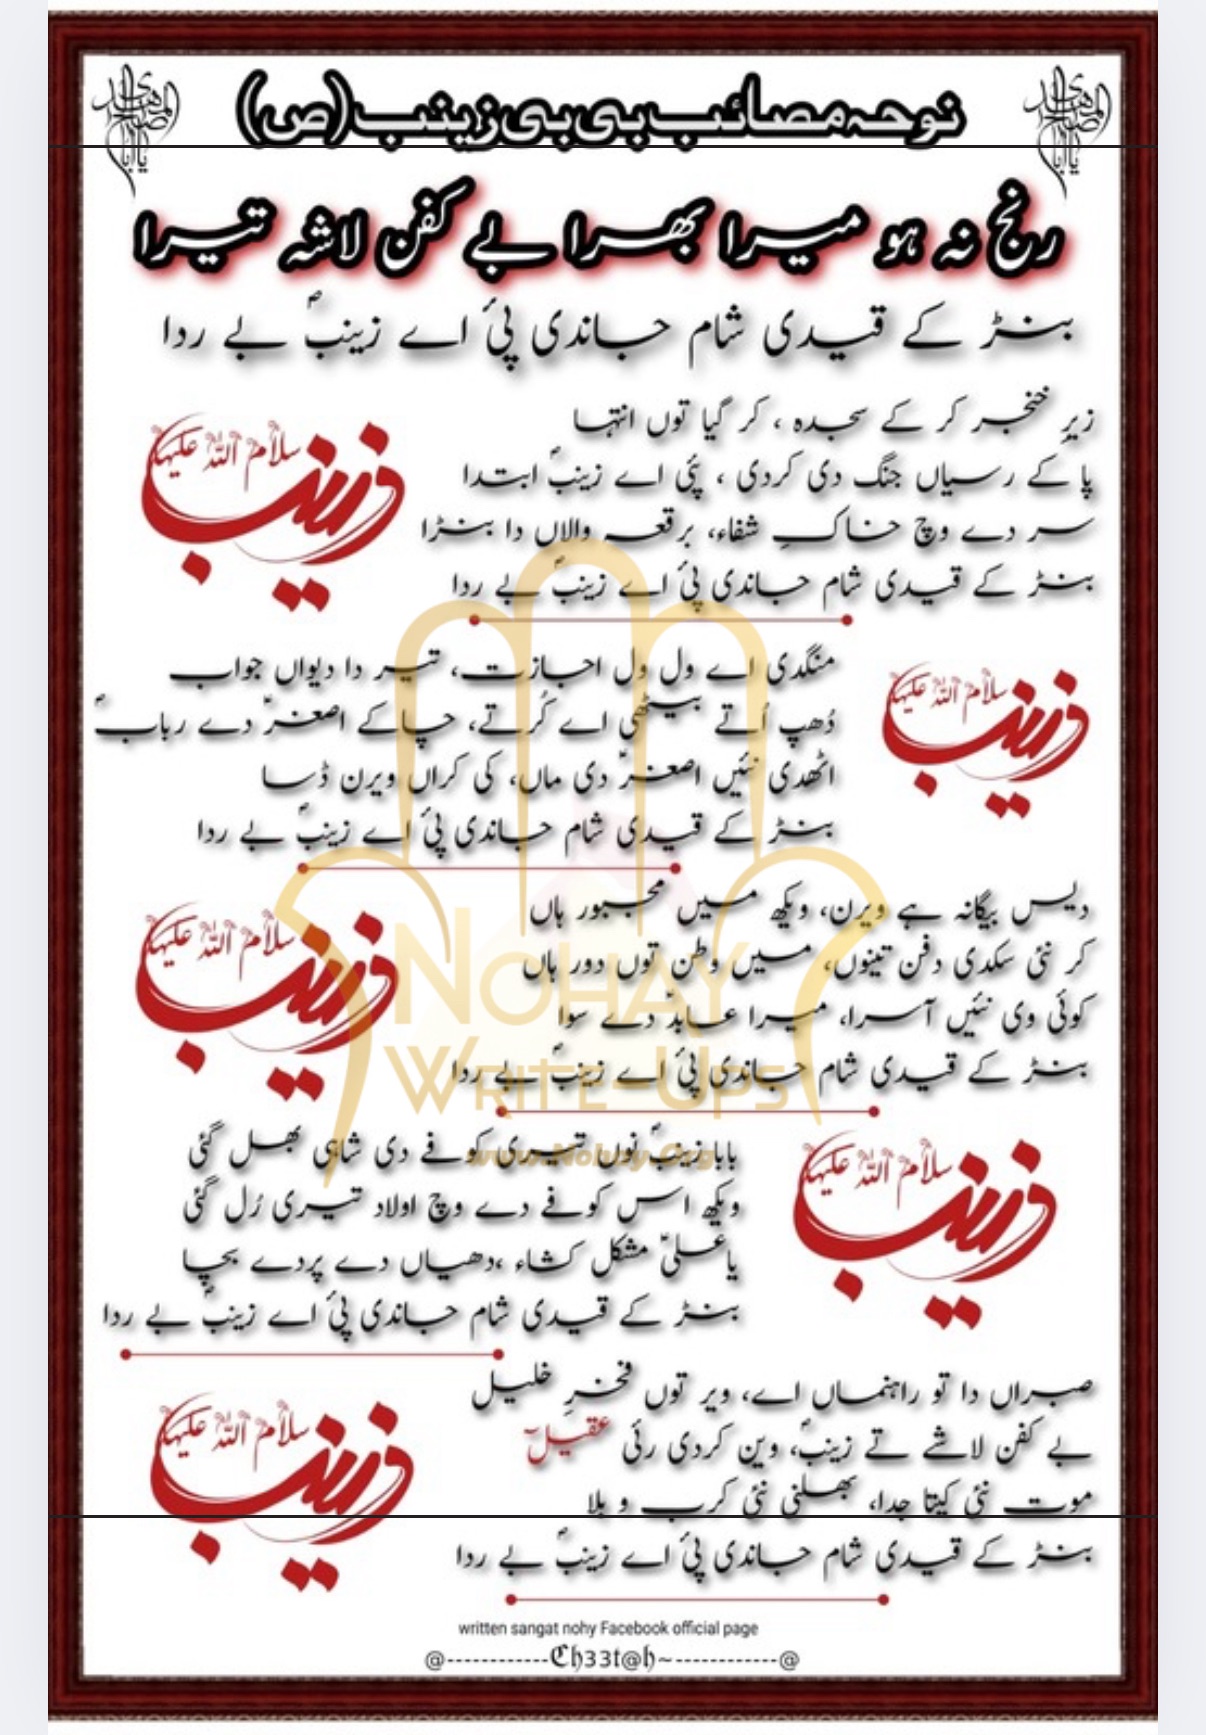 نوحہ مصائب بی بی زینب (ص)
رنج نہ ہو میرا بھرا بے کفن لاشہ تیرا
بنڑ کے قیدی شام جاندی پئ اے زینبؑ بے ردا
زیرِ خنجر کر کے سجدہ ، کر گیا توں انتہا
پا کے رسیاں جنگ دی کردی ، پئی اے زینبؑ ابتدا
سر دے وچ خاکِ شفاء، برقعہ والاں دا بنڑا
بنڑ کے قیدی شام جاندی پئ اے زینبؑ بے ردا
سلامُ اللہ علیہا
زینب
منگدی اے ول ول اجازت، تیر دا دیواں جواب
دُھپ اُتے بیٹھی اے کُرتے، چا کے اصغرؑ دے ربابؑ
اٹھدی نئیں اصغرؑ دی ماں، کی کراں ویرن ڈسا
بنڑ کے قیدی شام جاندی پئ اے زینبؑ بے ردا
سلامُ اللہ علیہا
زینب
دیس بیگانہ ہے ویرن، ویکھ میں مجبور ہاں
کر نئی سکدی دفن تینوں، میں وطن توں دور ہاں
کوئی وی نئیں آسرا، میرا عابدؑ دے سوا
بنڑ کے قیدی شام جاندی پئ اے زینبؑ بے ردا
سلامُ اللہ علیہا
زینب
NOHAY
WRITE-UPS
www.Nohay.Org
بابا زینبؑ نوں تیری کوفے دی شاہی بھل گئی
ویکھ اس کوفے دے وچ اولاد تیری رُل گئی
یا علیؑ مشکل کشاء ،دھیاں دے پردے بچا
بنڑ کے قیدی شام جاندی پئ اے زینبؑ بے ردا
سلامُ اللہ علیہا
زینب
صبراں دا تو راہنماں اے، ویر توں فخرِ خلیل
بے کفن لاشے تے زینبؑ، وین کردی رئی عقیلؔ
موت نئی کیتا جدا، بھلنی نئی کرب و بلا
بنڑ کے قیدی شام جاندی پئ اے زینبؑ بے ردا
سلامُ اللہ علیہا
زینب
written sangat nohy Facebook official page
@------------Ch33t@h~------------@